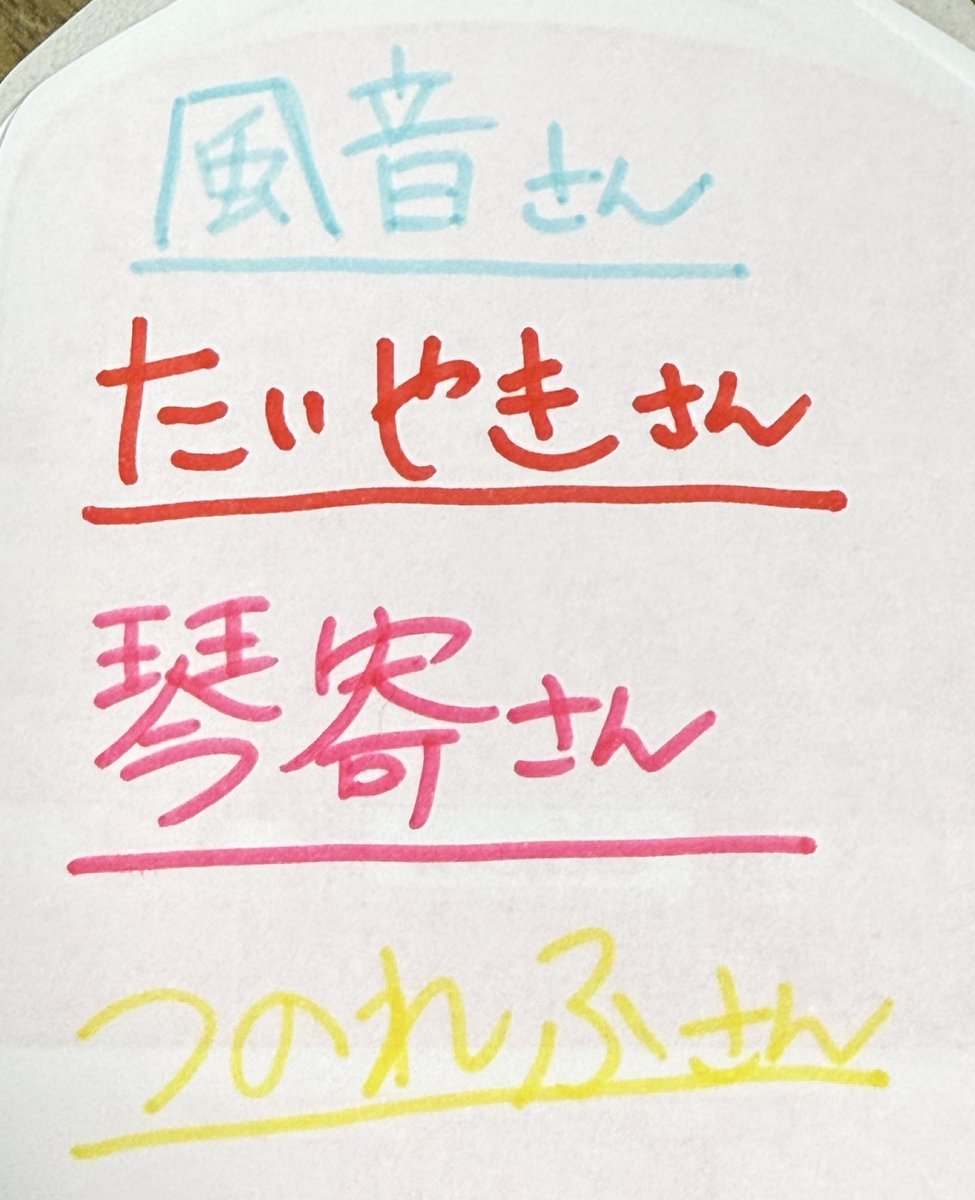 風音さん
たいやきさん
琴寄さん
つのれふさん